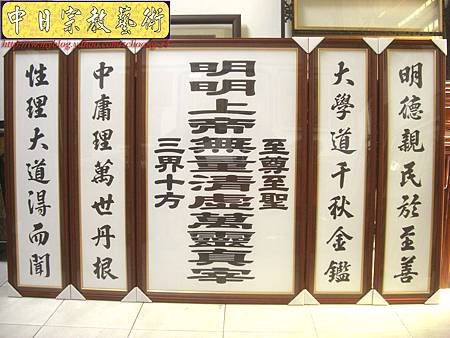 中日宗教藝術
明德親民於至善
大學道千秋金鑑
至尊至聖
明明上帝無量清虛萬靈真宰
三界十方
中庸理萬世丹根
性理大道淂而聞